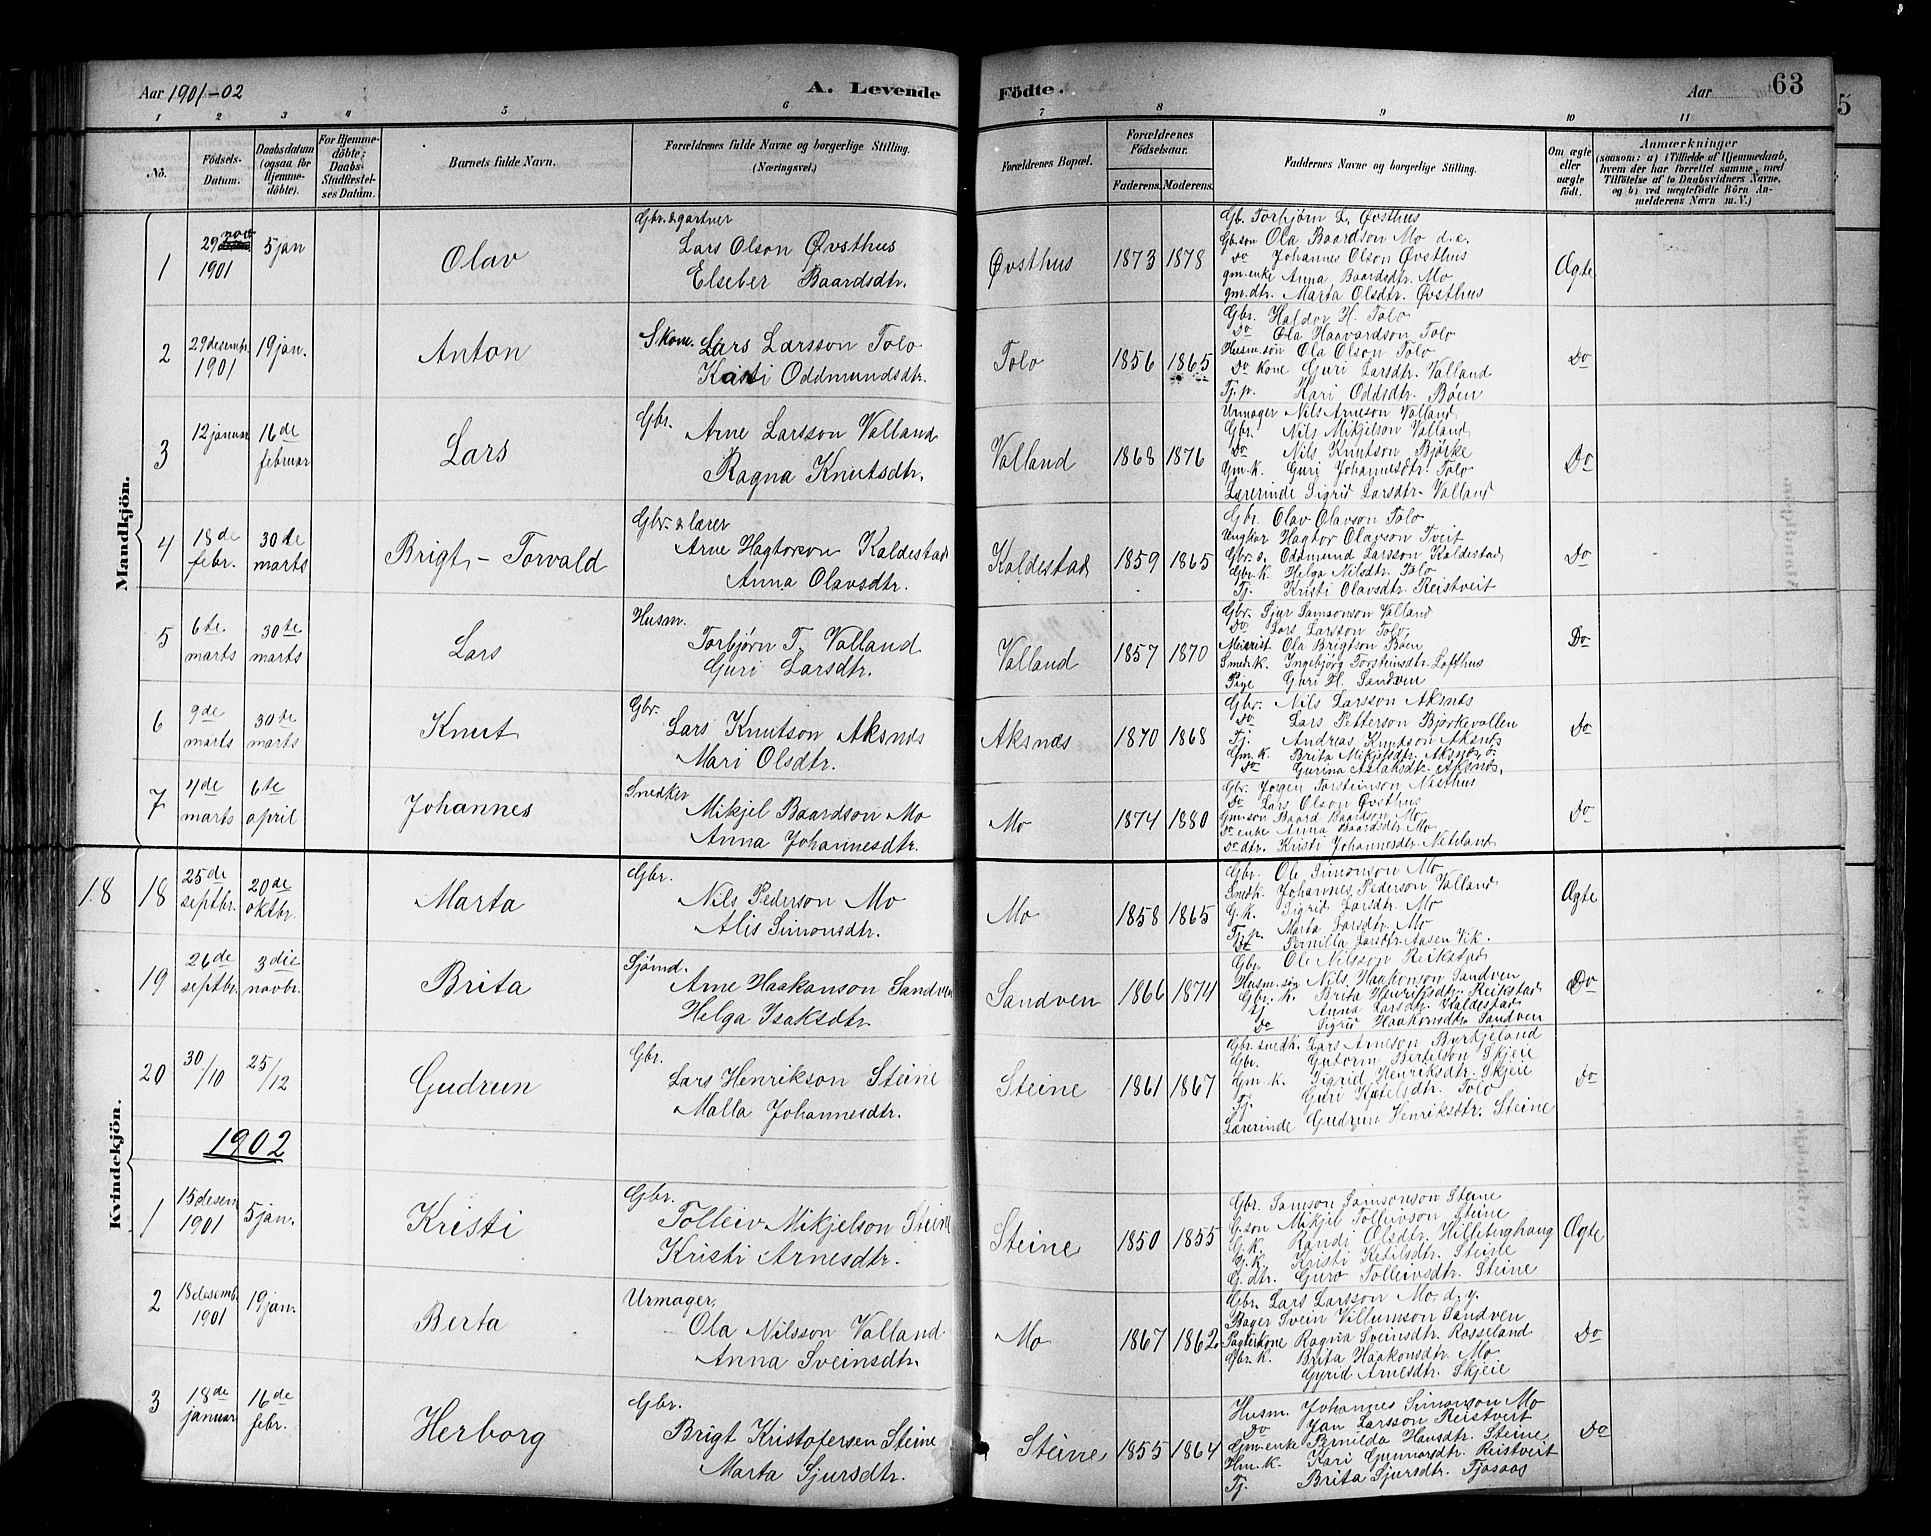 Aar 1901-02
A. Levende
Fødte.
Aar
63
1 2 3 4 5 6 7 8 9 10 11
No.
Fødsels-
Datum.
Daabsdatum
(ogsaa for
Hjemme-
døbte).
For Hjemme-
døbte:
Daabs-
Stadfæstel-
ses Datum.
Barnets fulde Navn.
Forældrenes fulde Navne og borgerlige Stilling.
(Næringsvei.)
Forældrenes Bopæl.
Forældrenes
Fødselsaar.
Faderens. Moderens.
Faddernes Navne og borgerlige Stilling.
Om ægte
eller
uægte
født.
Anmærkninger
(saasom: a) i Tilfælde af Hjemmedaab,
hvem der har forrettet samme, med
Tilføielse af to Daabsvidners Navne,
og b) ved uægtefødte Børn An-
melderens Navn m. V.)
Mandkjøn.
1
29 nov
1901
5 jan
Olav
Gbr. & gartner
Lars Olson Øvsthus
Elseber Baardsdtr.
Øvsthus
1873 1878
Gb. Torbjørn L. Øvsthus
Gb. son Ola Baardson Mo d.e.
Do Johannes Olson Øvsthus
gm. enke Anna Baardsdtr. Mo
gm. dtr. Marta Olsdtr. Øvsthus
Ægte
2
29 desembr.
1901
19 jan.
Anton
Skom. Lars Larsson Tolo
Kristi Oddmundsdtr.
Tolo
1856 1865
Gbr. Haldor H. Tolo
Do Ola Haavardson Tolo
Husm. søn Ola Olson Tolo
Do Kone Guri Larsdtr. Valland
Tj. p. Kari Oddsdtr. Bøen
Do
3
12 januar
16de
februar
Lars
Gbr.
Arne Larsson Valland
Ragna Knutsdtr.
Valland
1868 1876
Urmager Nils Arneson Valland
Gbr. Nils Mikjelson Valland
Do Nils Knutson Bjørke
Gm. K. Guri Johannesdtr. Tolo
Lærerinde Sigrid Larsdtr. Valland
Do
4
18de
febr.
30te
marts
Brigt-Torvald
Gbr. & lærer
Arne Hagtorson Kaldestad
Anna Olavsdtr.
Kaldestad
1859 1865
Gbr. Olav Olavson Tolo
Ungkar Hagtor Olavson Tveit
Gbr. s. Oddmund Larsson Kaldestad
Gbr. K. Helga Nilsdtr. Tolo
Tj. Kristi Olavsdtr. Reistveit
Do
5
6te
marts
30te
marts
Lars
Husm.
Torbjørn T. Valland
Guri Larsdtr.
Valland
1857 1870
Gbr. Sjur Samsonson Valland
Do Lars Larsson Tolo,
Meierist Ola Brigtson Bøen
Smed. K. Ingebjørg Torsteinsdtr. Lofthus
Pige Guri H. Sandven
Do
6
9de
marts
30te
marts
Knut
Gbr.
Lars Knutson Aksnes
Mari Olsdtr.
Aksnæs
1870 1868
Gbr. Nils Larsson Aksnes
Do Lars Petterson Bjørkevollen
Tj. Andreas Knutson Aksnes
Gm. K. Brita Mikjelsdtr. Aksnes
Do Gurina Aslaksdtr. Aksnes.
Do
7
4de
marts
6te
april
Johannes
Snedker
Mikjel Baardson Mo
Anna Johannesdtr.
Mo
1874 1880
Gbr. Jørgen Torsteinson Nesthus
Do Lars Olson Øvsthus
Gm. son Baard Baardson Mo
Do enke Anna Baardsdtr. Mo
Do dtr. Kristi Johannesdtr. Neteland
Do
Kvindekjøn.
18
18
25de
septbr.
20de
oktbr.
Marta
Gbr.
Nils Pederson Mo
Alis Simonsdtr.
Mo
1858 1865
Gbr. Ole Simonson Mo
Snedk. Johannes Pederson Valland
G. K. Sigrid Larsdtr. Mo
Tj. p. Marta Larsdtr. Mo
Do Pernilla Larsdtr. Aasen Vik.
Ægte
19
26de
septbr.
3die
novbr.
Brita
Sjømd.
Arne Haakonson Sandven
Helga Isaksdtr.
Sandven
1866 1874
Gbr. Ole Nilsson Reikstad
Husm. søn Nils Haakonson Sandven
Gbr. K. Brita Henriksdtr. Reikstad
tj Anna Larsdtr. Kaldestad
Do Sigrid Haakonsdtr. Sandven
Do
20
30/10
25/12
Gudrun
Gbr.
Lars Henrikson Steine
Malla Johannesdtr.
Steine
1861 1867
Gbr. snedk. Lars Arneson Byrkjeland
Gbr. Gutorm Bertelson Skjeie
Gm. K. Sigrid Henriksdtr. Skjeie
Tj. Guri Ketelsdtr. Tolo
Lærerinde Gudrun Henriksdtr. Steine
Do
1902
1
15 desem
1901
5 jan.
Kristi
Gbr.
Tolleiv Mikjelson Steine
Kristi Arnesdtr.
Steine
1850 1855
Gbr. Samson Samsonson Steine
G. son Mikjel Tolleivson Steine
G. K. Randi Olsdtr. Hilleberghaug
G. K. Kristi Ketilsdtr. Steine
G. dtr. Guro Tolleivsdtr. Steine
Ægte
2
18 desemb.
1901
19 jan.
Berta
Urmager,
Ola Nilsson Valland
Anna Sveinsdtr.
Mo
1867 1862
Gbr. Lars Larsson Mo d.y.
Bager Svein Villumson Sandven
Pagterkone Ragna Sveinsdtr. Rosseland
Gbr. K. Brita Haakonsdtr. Mo
Gyrid Arnesdtr. Skjeie
Do
3
18de
januar
16de
febr.
Herborg
Gbr.
Brigt Kristofersen Steine
Marta Sjursdtr.
Steine
1855 1864
Husm. Johannes Simonson Mo
Do Jan Larsson Reistveit
Gm. enke Pernilda Hansdtr. Steine
Hm. K. Kari Gunnarsdtr. Reistveit
Tj. Brita Sjursdtr. Tjosaas
Do
5